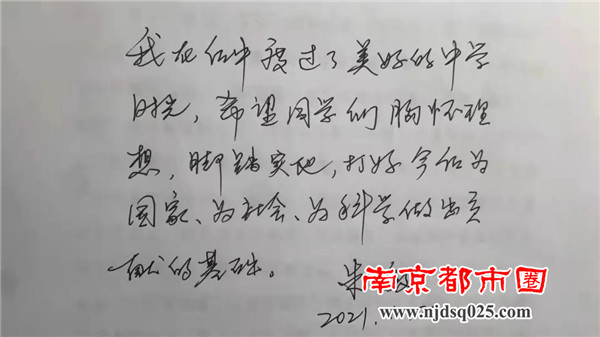 我在仪中度过了美好的中学
时光，希望同学们胸怀理
想，脚踏实地，打好今后为
国家、为社会、为科学做出贡
献的基础。
朱
南京都市圈
2021.
www.njdsq025.com